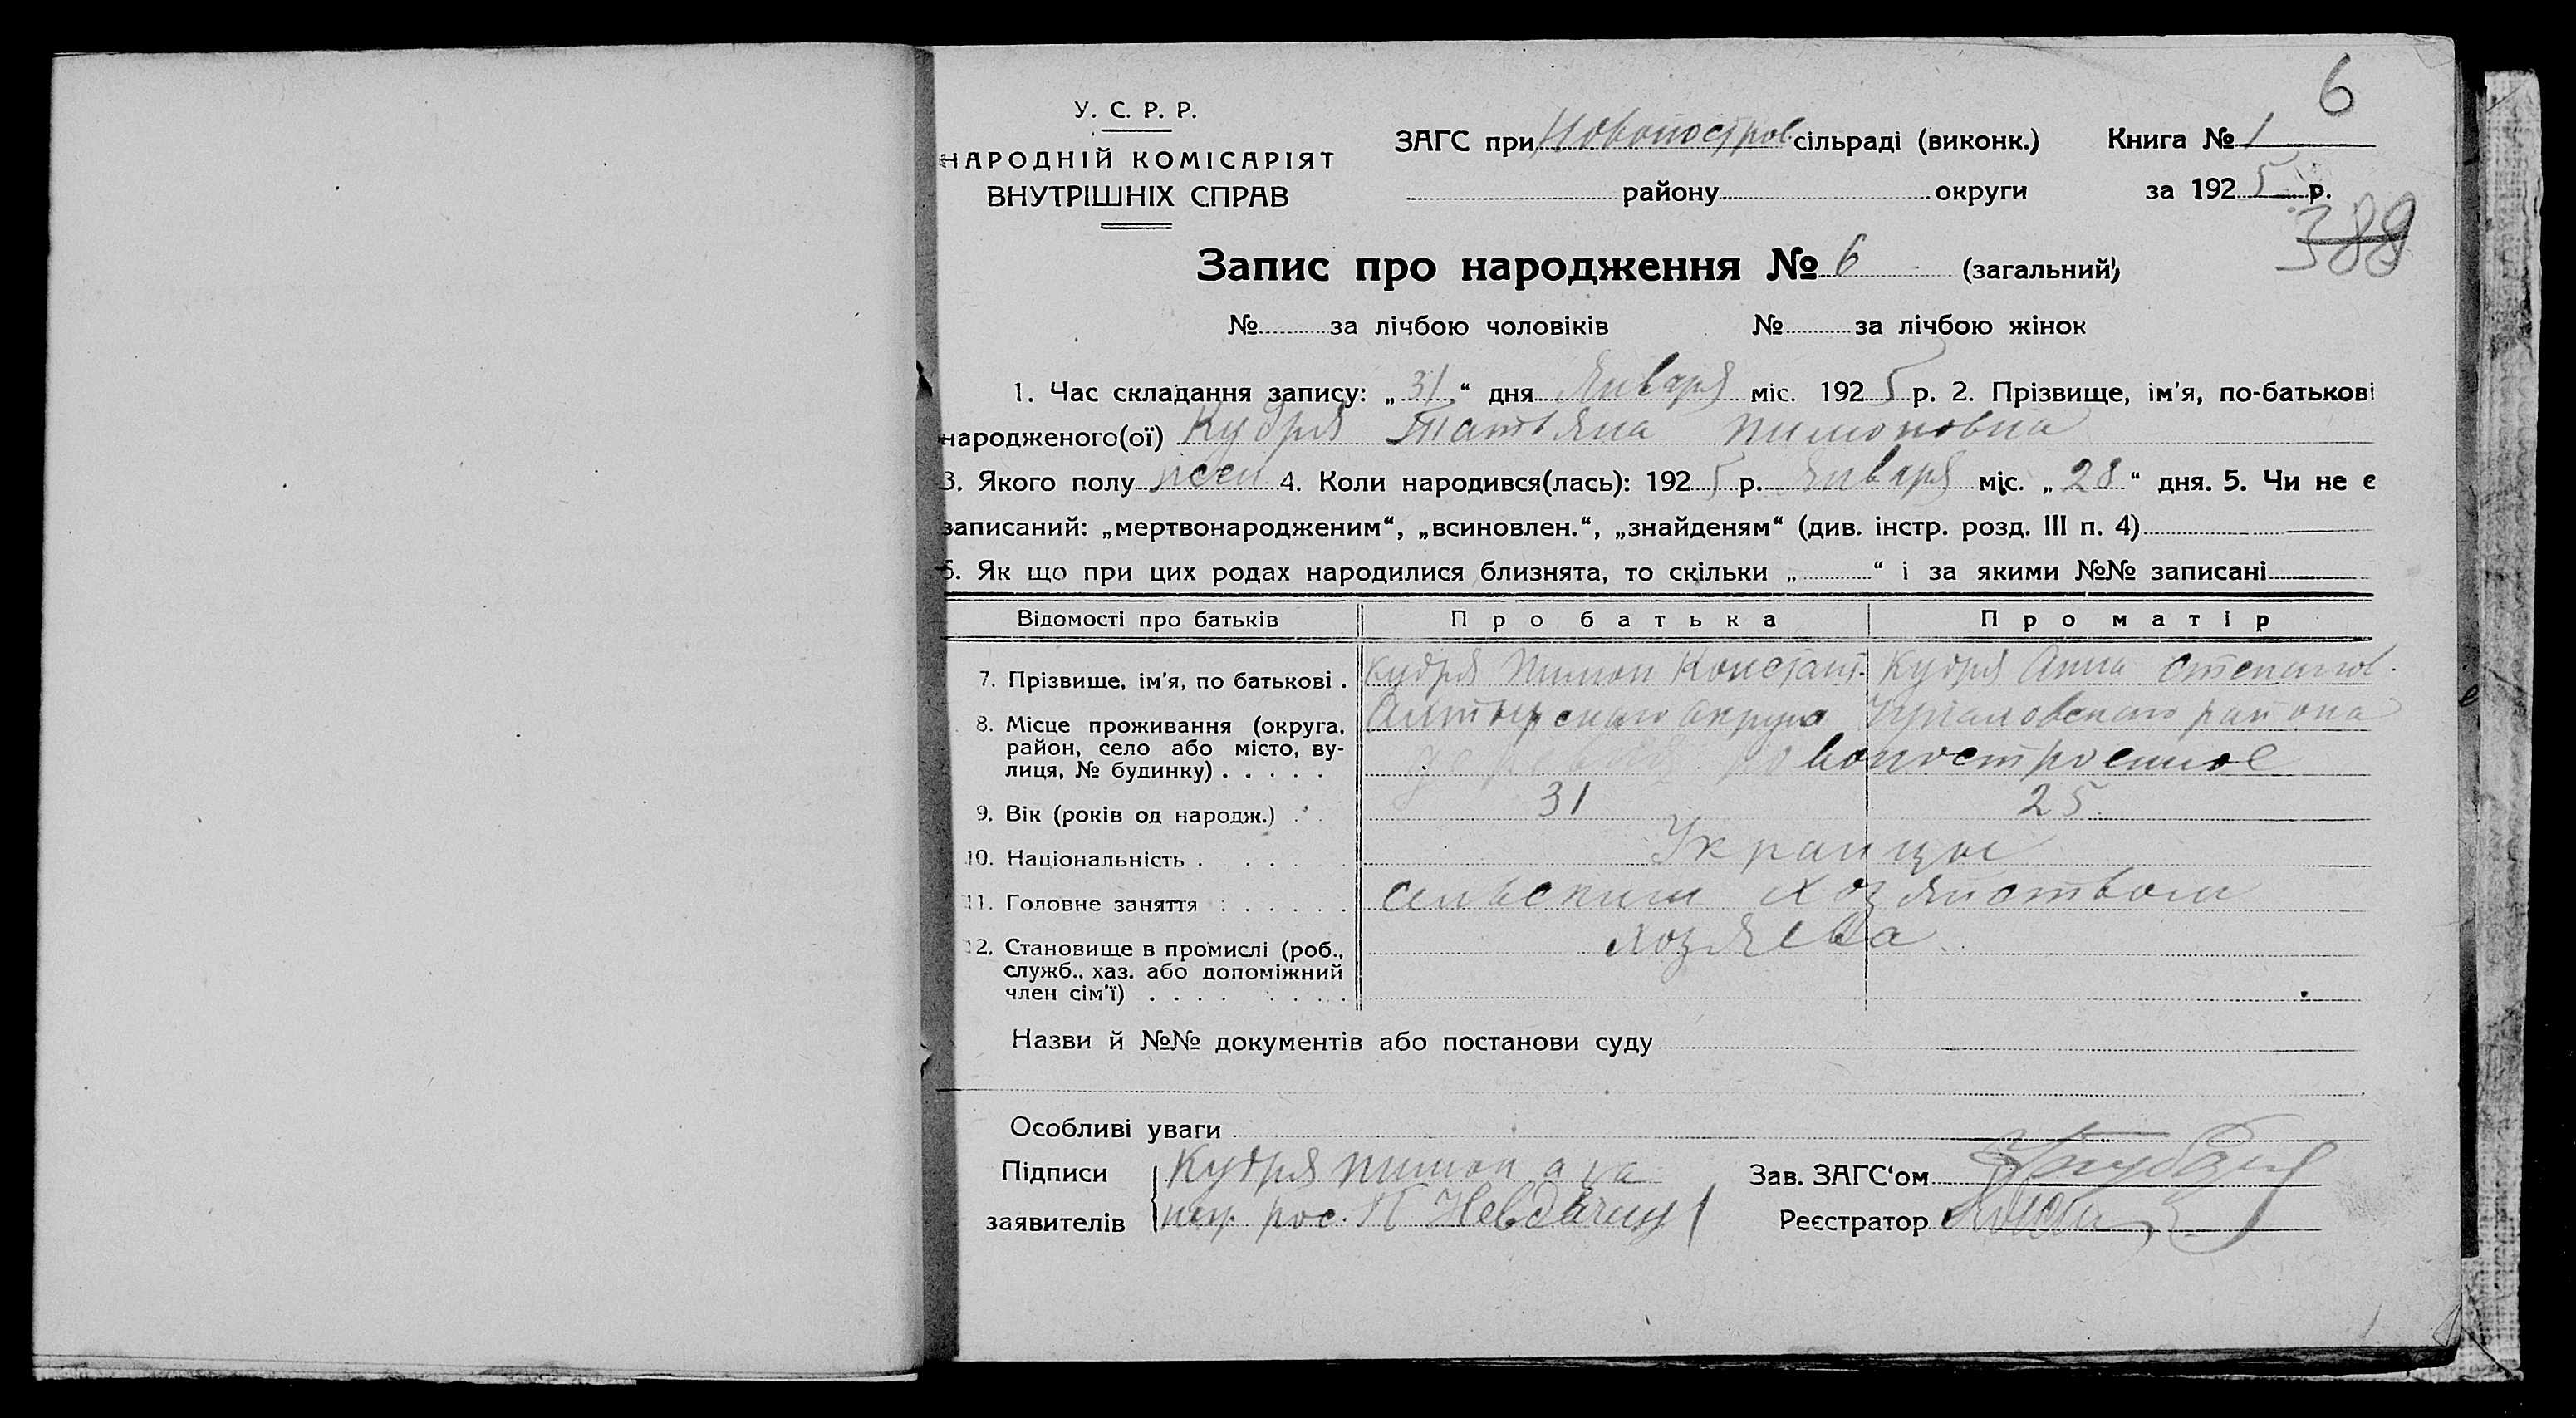 6
У. С. Р. Р.
НАРОДНІЙ КОМІСАРІЯТ
ВНУТРІШНІХ СПРАВ
ЗАГС при Новопостров. сільраді (виконк.) Книга № 1
району округи за 1925 р.
388
Запис про народження № 6 (загальний)
№ за лічбою чоловіків № за лічбою жінок
1. Час складання запису: „31“ дня Января міс. 1925 р. 2. Прізвище, ім'я, по-батькові
народженого(ої) Кудря Татьяна Пимоновна
3. Якого полу жен 4. Коли народився(лась): 1925 р. Января міс. „28“ дня. 5. Чи не є
записаний: „мертвонародженим“, „всиновлен.“, „знайденям“ (див. інстр. розд. III п. 4)
6. Як що при цих родах народилися близнята, то скільки „ “ і за якими №№ записані
Відомості про батьків Про батька Про матір
7. Прізвище, ім'я, по батькові . Кудря Пимон Констант. Кудря Анна Степанов.
8. Місце проживання (округа, округа района
район, село або місто, ву-
лиця, № будинку) . . . . . Новопостроенное
9. Вік (років од народж.) . 31 25.
10. Національність . . . . Украинцы
11. Головне заняття : . . . . . Сельским хозяйством
12. Становище в промислі (роб., хозяева
служб., хаз. або допоміжний
член сім'ї) . . . . . . . .
Назви й №№ документів або постанови суду
Особливі уваги
Підписи Кудря Пимон а за
заявителів нег. рос. П Невдачин
Зав. ЗАГС‘ом
Реєстратор